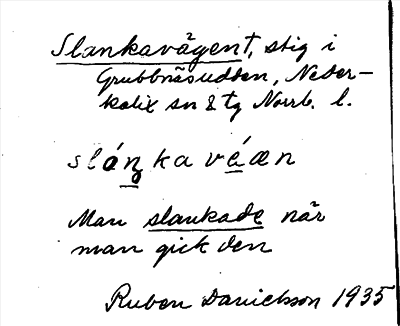 Slankavägent, stig i
Grubbnäsudden, Neder-
kalix sn & tg Norrb. l.
slánka véæn
Man slankade när
man gick den
Ruben Danielsson 1935